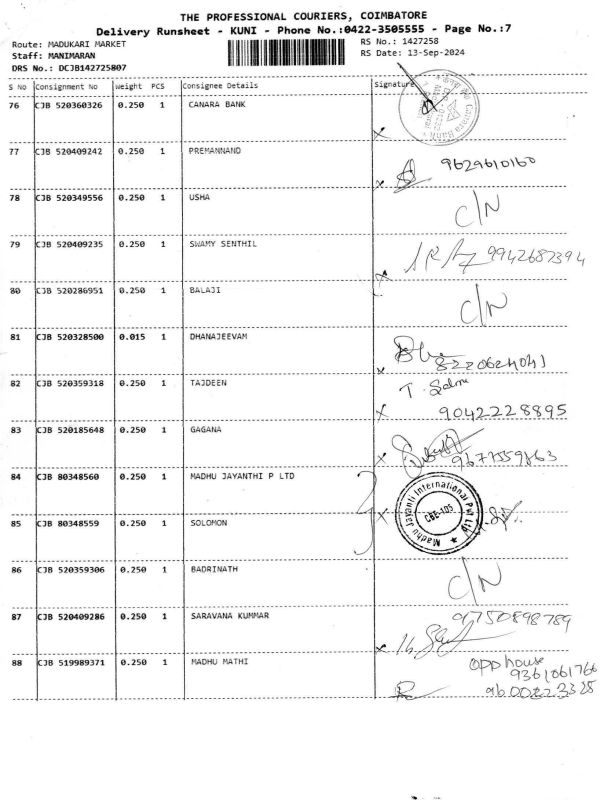 THE PROFESSIONAL COURIERS, COIMBATORE
Delivery Runsheet - KUNI - Phone No.:0422-3505555 - Page No.:7
Route: MADUKARI MARKET
Staff: MANIMARAN
DRS No.: DCJB142725807
RS No.: 1427258
RS Date: 13-Sep-2024
S No Consignment No Weight PCS Consignee Details Signature
76 CJB 520360326 0.250 1 CANARA BANK
77 CJB 520409242 0.250 1 PREMANNAND 9629610160
78 CJB 520349556 0.250 1 USHA C/N
79 CJB 520409235 0.250 1 SWAMY SENTHIL 9942687394
80 CJB 520286951 0.250 1 BALAJI C/N
81 CJB 520328500 0.015 1 DHANAJEEVAM 8220624041
82 CJB 520359318 0.250 1 TAJDEEN T. Salma
9042228895
83 CJB 520185648 0.250 1 GAGANA 9677559863
84 CJB 80348560 0.250 1 MADHU JAYANTHI P LTD
Madhu Jayanti International Pvt Ltd
CBE-105
85 CJB 80348559 0.250 1 SOLOMON
86 CJB 520359306 0.250 1 BADRINATH C/N
87 CJB 520409286 0.250 1 SARAVANA KUMMAR 9750898789
88 CJB 519989371 0.250 1 MADHU MATHI opp house
9361061766